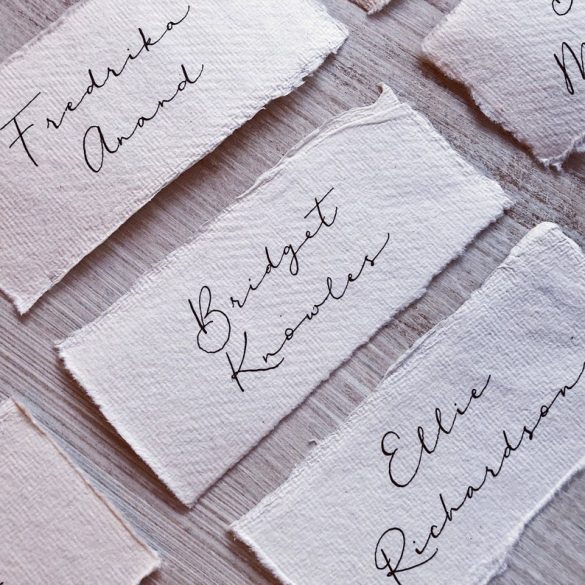 Fredrika
Anand
Bridget
Knowles
Ellie
Richardson